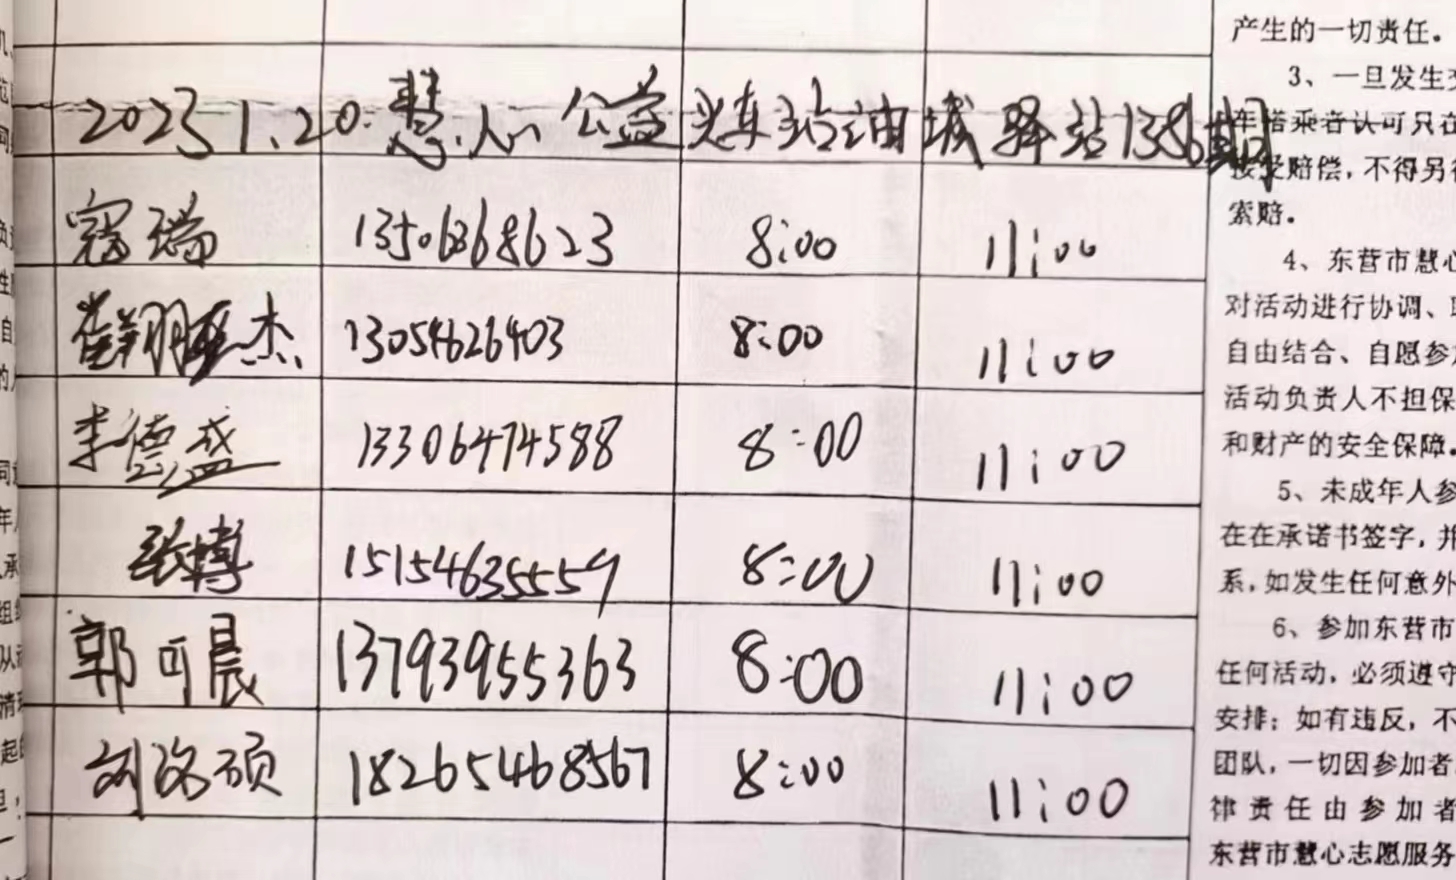 产生的一切责任。
3、一旦发生
2023 1.20. 慧心公益火车站油城驿站1386期
车搭乘者认可只在
接受赔偿，不得另
索赔。
寇瑞 13506368623 8:00 11:00
4、东营市慧心
对活动进行协调、
翔 杰 13054626403 8:00 11:00
自由结合、自愿参
活动负责人不担保
李德盛 13306474588 8:00 11:00
和财产的安全保障。
5、未成年人参
在在承诺书签字，并
张博 15154635559 8:00 11:00
系，如发生任何意外
6、参加东营市
郭可晨 13793955363 8:00 11:00
任何活动，必须遵守
安排；如有违反，不
刘洺硕 18265468567 8:00 11:00
团队，一切因参加者
律责任由参加者
东营市慧心志愿服务